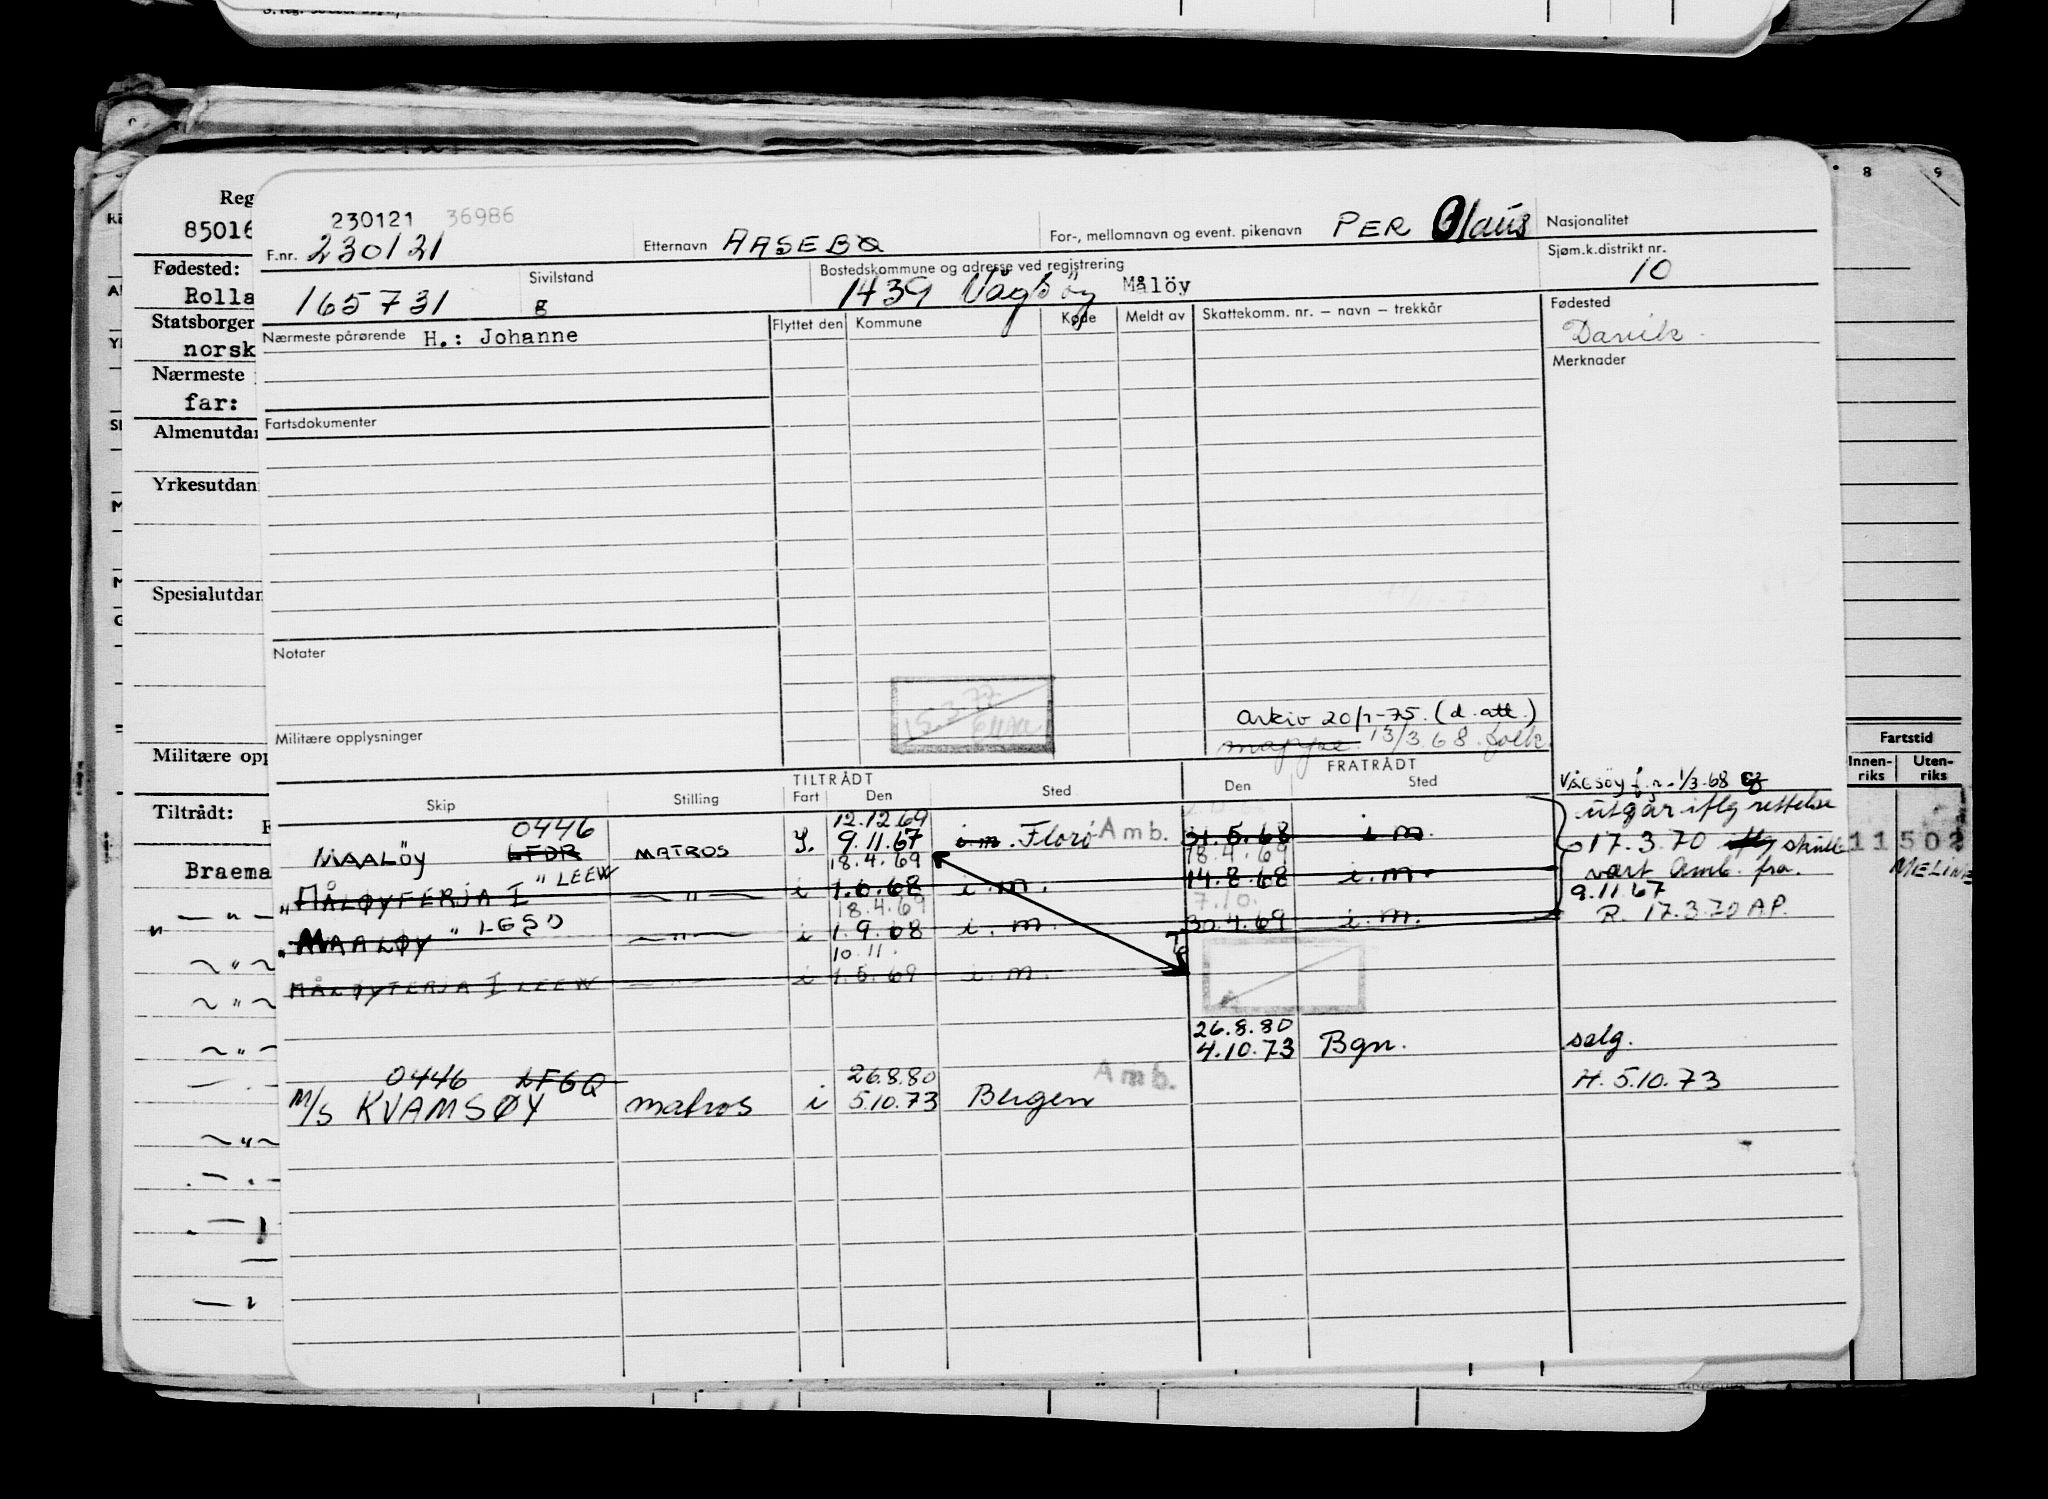 230121 36986
F.nr. 230121
Etternavn AASEBØ
For-, mellomnavn og event. pikenavn PER Olaus
Nasjonalitet
Sjøm.k.distrikt nr.
10
165731
Sivilstand
g
Bostedskommune og adresse ved registrering
1439 Vågsöy Målöy
Nærmeste pårørende H.: Johanne
Flyttet den
Kommune
Køde
Meldt av
Skattekomm. nr. – navn – trekkår
Fødested
Davik
Merknader
Fartsdokumenter
Notater
15.3.77
Militære opplysninger
arkiv 20/1-75. (d. att.)
mappe 13/3.68.
TILTRÅDT
FRATRÅDT
Skip
Stilling
Fart
Den
Sted
Den
Sted
VÅGSÖY f.r. 1/3-68
utgår iflg rettelse
17.3.70 skulle
vært Amb. fra
9.11.67
R. 17.3.70 A.P.
12.12.69
MAALÖY 0446 LFDR MATROS 9.11.67 i.m. Florö Amb. 31.5.68 i m
18.4.69 18.4.69
" MÅLØYFERJA I " LEEW — " — i 1.6.68 i.m. 14.8.68 i.m.
18.4.69 7.10.
" MAALØY " — " — i 1.9.68 i.m. 30.4.69 i.m.
10.11.
MÅLØYFERJA I LEEW i 1.5.69 i.m.
26.8.80
4.10.73 Bgn. salg.
0446 26.8.80 Amb. H. 5.10.73
M/S KVAMSØY matros i 5.10.73 Bergen
Reg
85016
Fødested:
Rolla
Statsborger
norsk
Nærmeste
far:
Almenutdan
Yrkesutdan
Spesialutdan
Militære opp
Tiltrådt:
Braema
8
9
Fartstid
Innen-
riks
Uten-
riks
11502